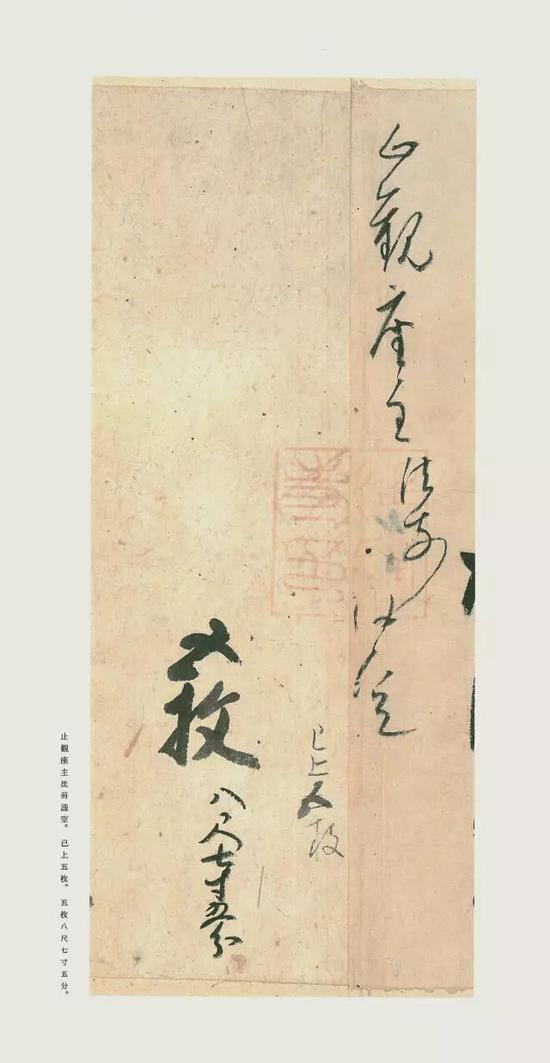 止觀座主法前 謹空
已上五枚
五枚
八尺七寸五分
止觀座主法前謹空。已上五枚。五枚八尺七寸五分。